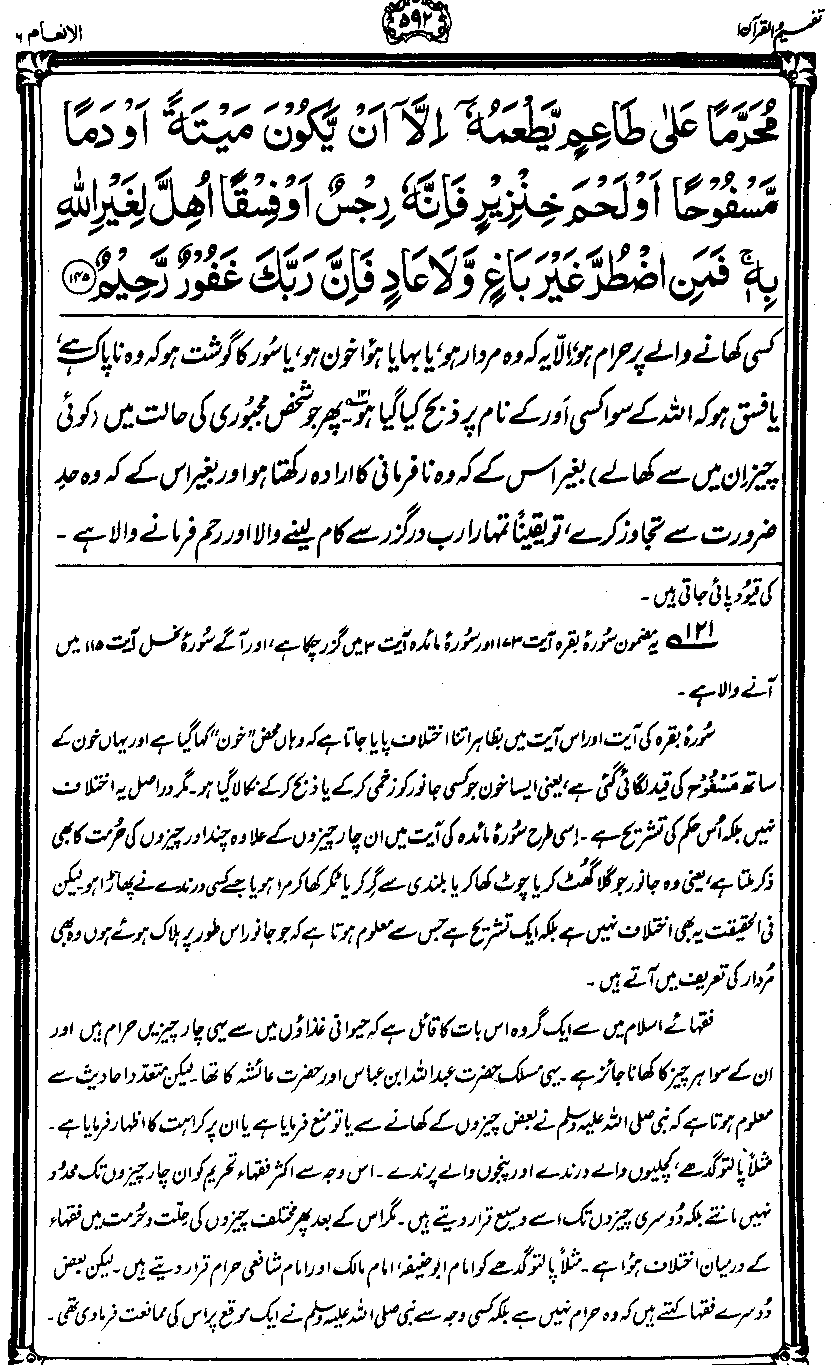 تفہیم القرآن ۱
۵۹۲
الانعام ۶
مُحَرَّمًا عَلٰى طَاعِمٍ يَّطْعَمُهٗۤ اِلَّاۤ اَنْ يَّكُوْنَ مَيْتَةً اَوْ دَمًا
مَّسْفُوْحًا اَوْ لَحْمَ خِنْزِيْرٍ فَاِنَّهٗ رِجْسٌ اَوْ فِسْقًا اُهِلَّ لِغَيْرِ اللّٰهِ
بِهٖ ۚ فَمَنِ اضْطُرَّ غَيْرَ بَاغٍ وَّلَا عَادٍ فَاِنَّ رَبَّكَ غَفُوْرٌ رَّحِيْمٌ ﴿۱۴۵﴾
کسی کھانے والے پر حرام ہو، الّا یہ کہ وہ مردار ہو، یا بہایا ہؤا خون ہو، یا سُور کا گوشت ہو کہ وہ ناپاک ہے،
یا فسق ہو کہ اللہ کے سوا کسی اَور کے نام پر ذبح کیا گیا ہو۔ پھر جو شخص مجبوری کی حالت میں (کوئی
چیز اِن میں سے کھا لے) بغیر اس کے کہ وہ نافرمانی کا ارادہ رکھتا ہو اور بغیر اس کے کہ وہ حدِ
ضرورت سے تجاوز کرے، تو یقیناً تمہارا رب درگزر سے کام لینے والا اور رحم فرمانے والا ہے۔
کی قیُود پائی جاتی ہیں۔
۱۲۱ یہ مضمون سُورۂ بقرہ آیت ۱۷۳ اور سُورۂ مائدہ آیت ۳ میں گزر چکا ہے، اور آگے سُورۂ نحل آیت ۱۱۵ میں
آنے والا ہے۔
سُورۂ بقرہ کی آیت اور اس آیت میں بظاہر اتنا اختلاف پایا جاتا ہے کہ وہاں محض ”خون“ کہا گیا ہے اور یہاں خون کے
ساتھ مَسْفُوْح کی قید لگائی گئی ہے، یعنی ایسا خون جو کسی جانور کو زخمی کر کے یا ذبح کر کے نکالا گیا ہو۔ مگر دراصل یہ اختلاف
نہیں بلکہ اُس حکم کی تشریح ہے۔ اِسی طرح سُورۂ مائدہ کی آیت میں ان چار چیزوں کے علاوہ چند اور چیزوں کی حُرمت کا بھی
ذکر ملتا ہے، یعنی وہ جانور جو گلا گھُٹ کر یا چوٹ کھا کر یا بلندی سے گِر کر یا ٹکر کھا کر مرا ہو یا جسے کسی درندے نے پھاڑا ہو۔ لیکن
فی الحقیقت یہ بھی اختلاف نہیں ہے بلکہ ایک تشریح ہے جس سے معلوم ہوتا ہے کہ جو جانور اس طور پر ہلاک ہوئے ہوں وہ بھی
مُردار کی تعریف میں آتے ہیں۔
فقہائے اسلام میں سے ایک گروہ اس بات کا قائل ہے کہ حیوانی غذاؤں میں سے یہی چار چیزیں حرام ہیں اور
ان کے سوا ہر چیز کا کھانا جائز ہے۔ یہی مسلک حضرت عبداللہ ابن عباس اور حضرت عائشہ کا تھا۔ لیکن متعدّد احادیث سے
معلوم ہوتا ہے کہ نبی صلی اللہ علیہ وسلم نے بعض چیزوں کے کھانے سے یا تو منع فرمایا ہے یا ان پر کراہت کا اظہار فرمایا ہے۔
مثلاً پالتو گدھے، کچلیوں والے درندے اور پنجوں والے پرندے۔ اس وجہ سے اکثر فقہاء تحریم کو ان چار چیزوں تک محدُود
نہیں مانتے بلکہ دُوسری چیزوں تک اسے وسیع قرار دیتے ہیں۔ مگر اس کے بعد پھر مختلف چیزوں کی حِلّت و حُرمت میں فقہاء
کے درمیان اختلاف ہؤا ہے۔ مثلاً پالتو گدھے کو امام ابوحنیفہ، امام مالک اور امام شافعی حرام قرار دیتے ہیں۔ لیکن بعض
دُوسرے فقہا کہتے ہیں کہ وہ حرام نہیں ہے بلکہ کسی وجہ سے نبی صلی اللہ علیہ وسلم نے ایک موقع پر اس کی ممانعت فرما دی تھی۔